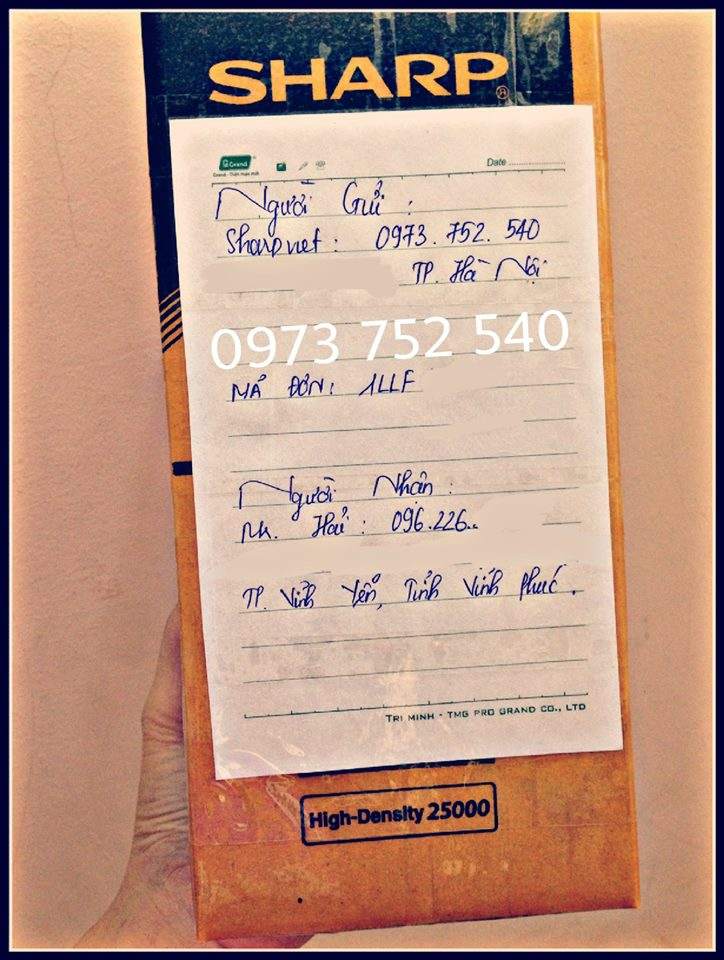 SHARP
Grand
Grand - Thân thiện mới
Date
Người Gửi :
Sharp.net : 0973. 752. 540
TP. Hà Nội
0973 752 540
MÃ ĐƠN: 1LLF
Người Nhận :
Mr. Hải : 096.226..
TP. Vĩnh Yên, Tỉnh Vĩnh Phúc.
TRI MINH - TMG PRO GRAND CO., LTD
High-Density 25000